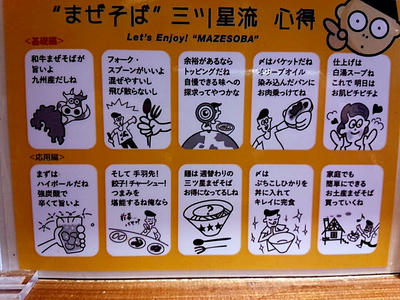 "まぜそば" 三ツ星流 心得
Let's Enjoy! "MAZESOBA"
<基礎編>
和牛まぜそばが
旨いよ
九州産だしね
フォーク・
スプーンがいいよ
混ぜやすいし
飛び散らないし
余裕があるなら
トッピングだね
自慢できる味への
探求ってやつかな
〆はバケットだね
オリーブオイル
染み込んだパンに
お肉乗っけてね
仕上げは
白湯スープね
これで 明日は
お肌ピチピチよ
<応用編>
まずは
ハイボールだね
強炭酸で
辛くて旨いよ
そして 手羽先!
餃子!チャーシュー!
つまみを
堪能するね俺なら
麺は 週替わりの
三ツ星まぜそば
お得になってるしね
〆は
ぶちこしひかりを
丼に入れて
キレイに完食
家庭でも
簡単にできる
お土産まぜそば
買っていくね